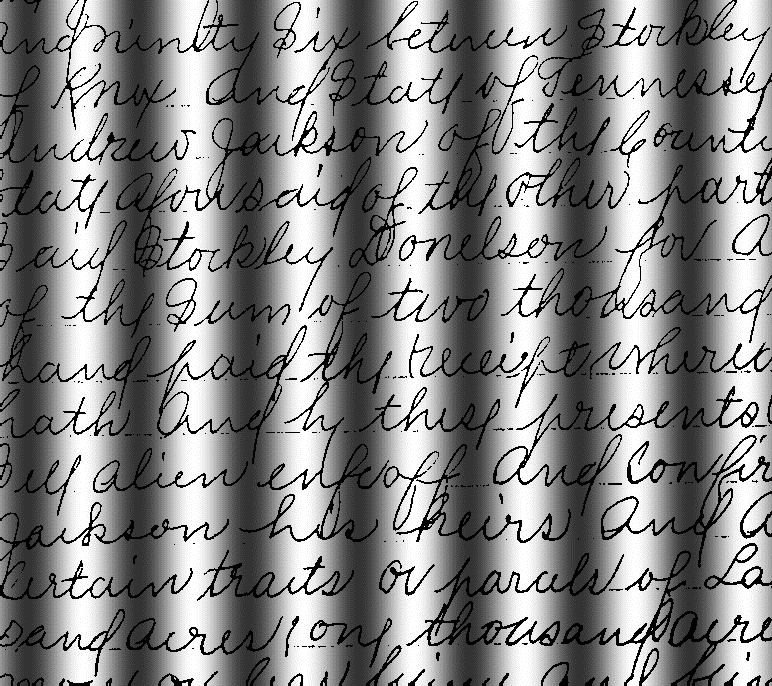 and ninety Six between Stockley
of Knox and State of Tennessee
Andrew Jackson of the Count
State aforesaid of the other part
Said Stockley Donelson for
of the Sum of two thousand
hand paid the receipt where
hath and by these presents
Sell alien enfeoff and Confir
Jackson his heirs and a
Certain tracts or parcels of La
sand acres one thousand acre
more or less being and bein